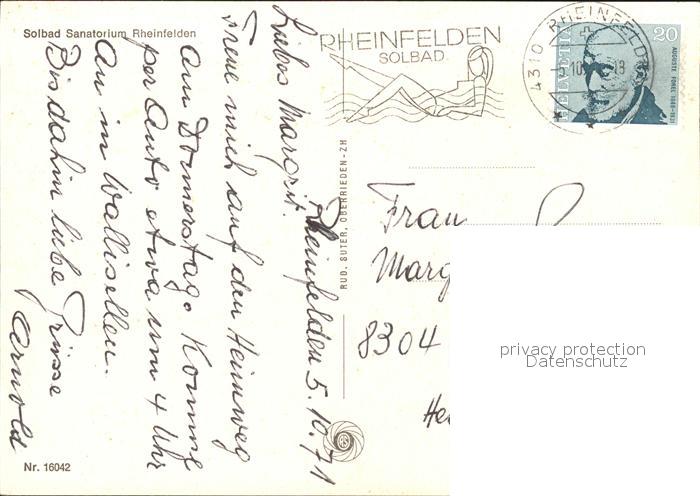 Solbad Sanatorium Rheinfelden
Rheinfelden 5.10.71
Liebes Margrit.
Freue mich auf den Heimweg
am Donnerstag. Komme
per Auto etwa um 4 Uhr
an in Wallisellen.
Bis dahin liebe Grüsse
Arnold
Nr. 16042
RUD. SUTER, OBERRIEDEN-ZH
RS
RHEINFELDEN
SOLBAD
4310 RHEINFELD
HELVETIA
20
AUGUSTE FOREL 1848-1931
Frau
Marg
8304
He
privacy protection
Datenschutz